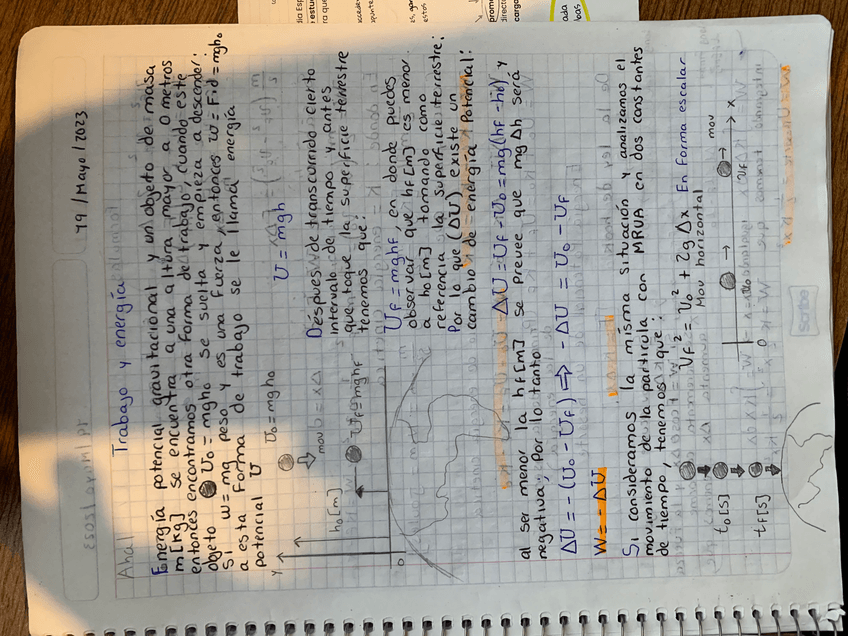 19/Mayo/2023
Trabajo y energía
Aha!
Energía potencial gravitacional y un objeto de masa
m[kg] se encuentra a una altura mayor a 0 metros
entonces encontramos otra forma de trabajo, cuando este
objeto U₀ = mgh₀ se suelta y empieza a descender:
Si w = mg peso y es una fuerza, entonces w = F·d = mgh₀
a esta forma de trabajo se le llama energía
potencial U
U = mgh
y
U₀ = mgh₀
mov
h₀[m]
Uf = mghf
0
Déspues de transcurrido cierto
intervalo de tiempo y antes
que toque la superficie terrestre
tenemos que:
Uf = mghf, en donde puedes
observar que hf[m] es menor
a h₀[m] tomando como
referencia la superficie terrestre:
Por lo que (ΔU) existe un
cambio de energía Potencial:
ΔU = Uf - U₀ = mg(hf - h₀) y
al ser menor la hf[m] se prevee que mgΔh será
negativa; Por lo tanto:
ΔU = -(U₀ - Uf) ⇒ -ΔU = U₀ - Uf
W = -ΔU
Si consideramos la misma situación y analizamos el
movimiento de la partícula con MRVA en dos constantes
de tiempo, tenemos que:
Vf² = V₀² + 2gΔx En forma escalar
Mov horizontal
mov
t₀[s]
tf[s]
0
Vf
x
Scribe